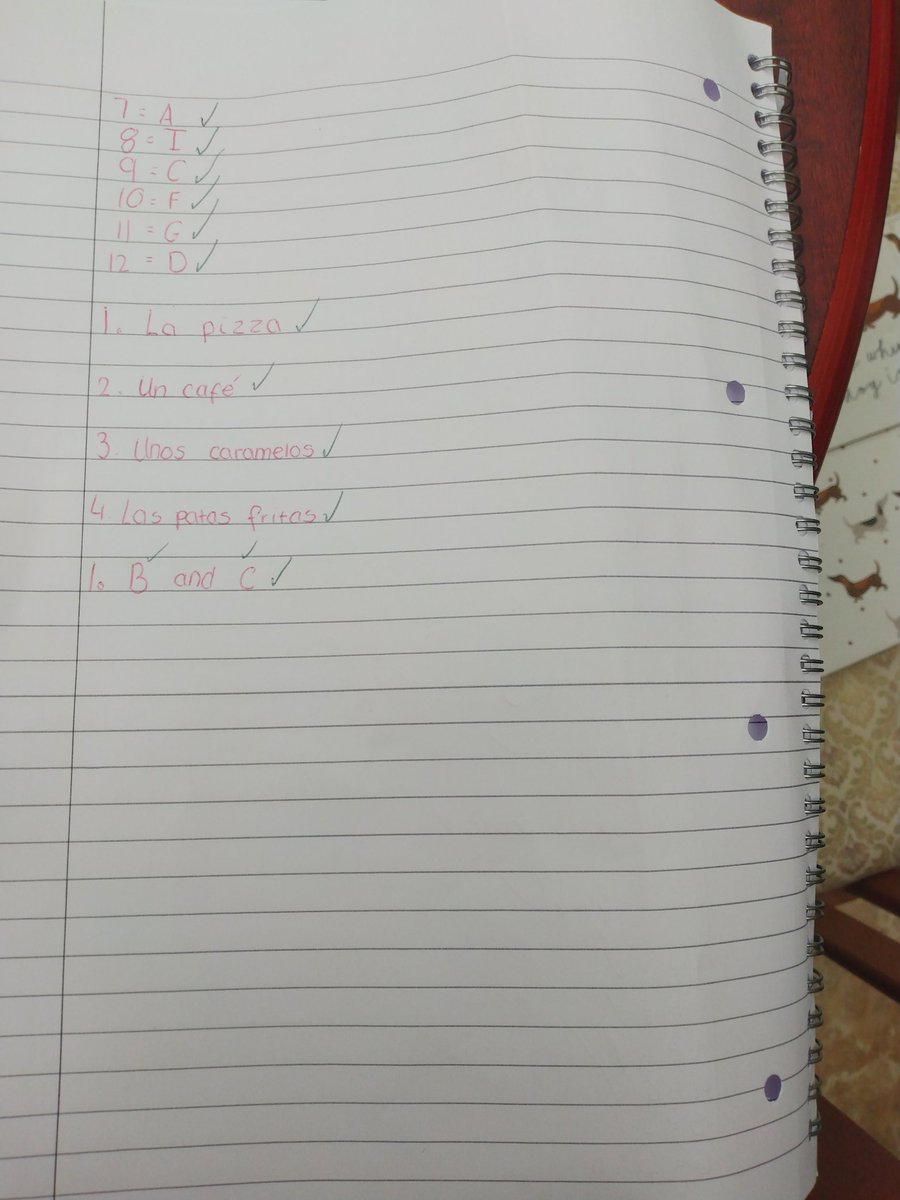 7 = A ✓
8 = I ✓
9 = C ✓
10 = F ✓
11 = G ✓
12 = D ✓
1. La pizza ✓
2. Un café ✓
3. Unos caramelos ✓
4. Las patas fritas ✓
1. B ✓ and C ✓ ✓